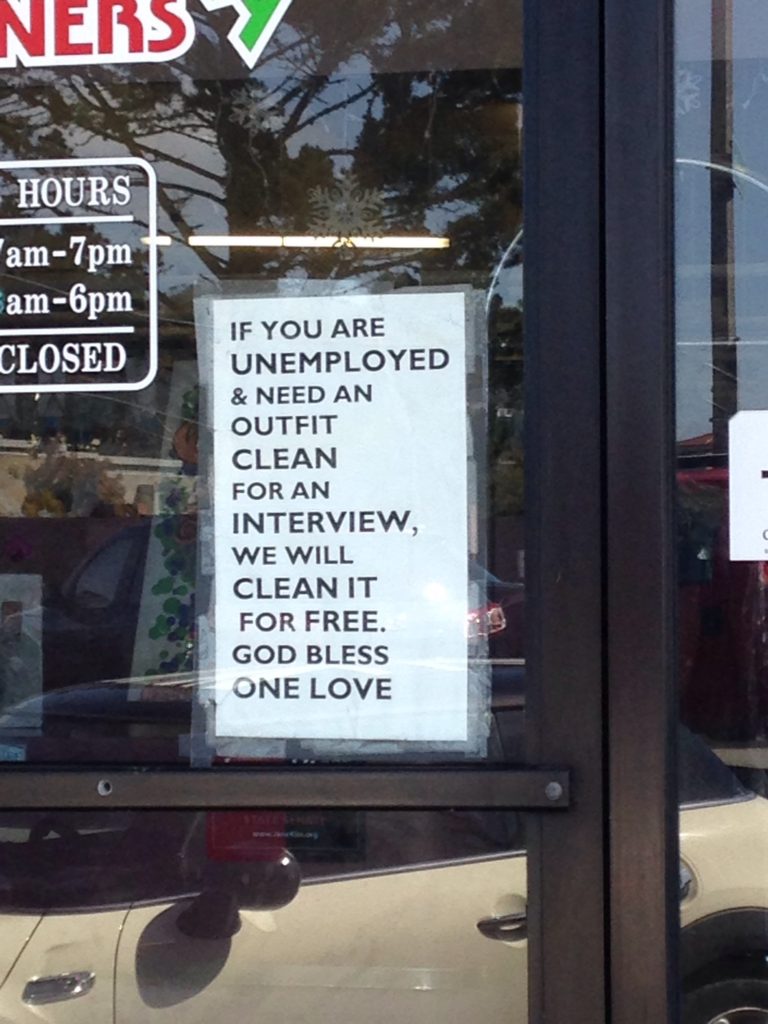 NERS
HOURS
7am-7pm
8am-6pm
CLOSED
IF YOU ARE
UNEMPLOYED
& NEED AN
OUTFIT
CLEAN
FOR AN
INTERVIEW,
WE WILL
CLEAN IT
FOR FREE.
GOD BLESS
ONE LOVE